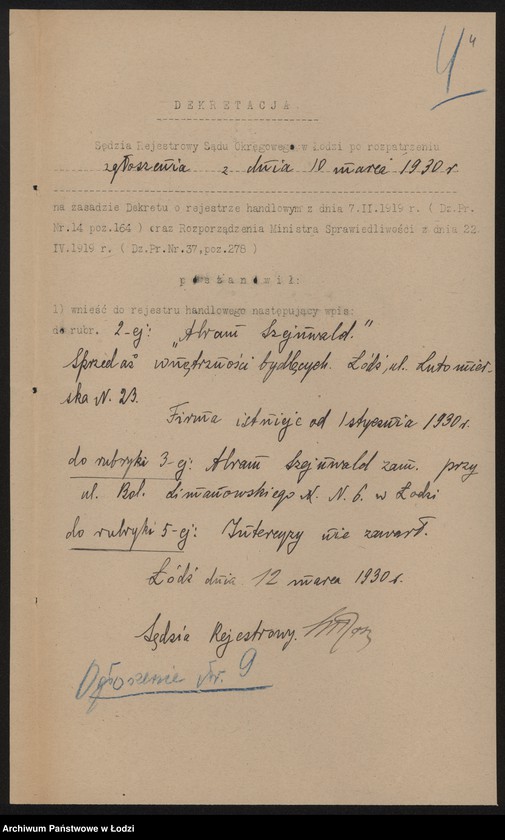 4
4
DEKRETACJA.
Sędzia Rejestrowy Sądu Okręgowego w Łodzi po rozpatrzeniu
zgłoszenia z dnia 10 marca 1930 r
na zasadzie Dekretu o rejestrze handlowym z dnia 7.II.1919 r. ( Dz.Pr.
Nr.14 poz.164 ) oraz Rozporządzenia Ministra Sprawiedliwości z dnia 22
IV.1919 r. ( Dz.Pr.Nr.37,poz.278 )
postanowił:
1) wnieść do rejestru handlowego następujący wpis:
do rubr. 2-ej: „Abram Szejnwald."
Sprzedaż wnętrzności bydlęcych. Łódź, ul. Lutomier-
ska N. 23.
Firma istnieje od 1 stycznia 1930 r.
do rubryki 3-ej: Abram Szejnwald zam. przy
ul. Bol. Limanowskiego N. 6. w Łodzi
do rubryki 5-ej: Intercyzy nie zawarł.
Łódź dnia 12 marca 1930 r.
Sędzia Rejestrowy.
Ogłoszenie Nr. 9
Archiwum Państwowe w Łodzi